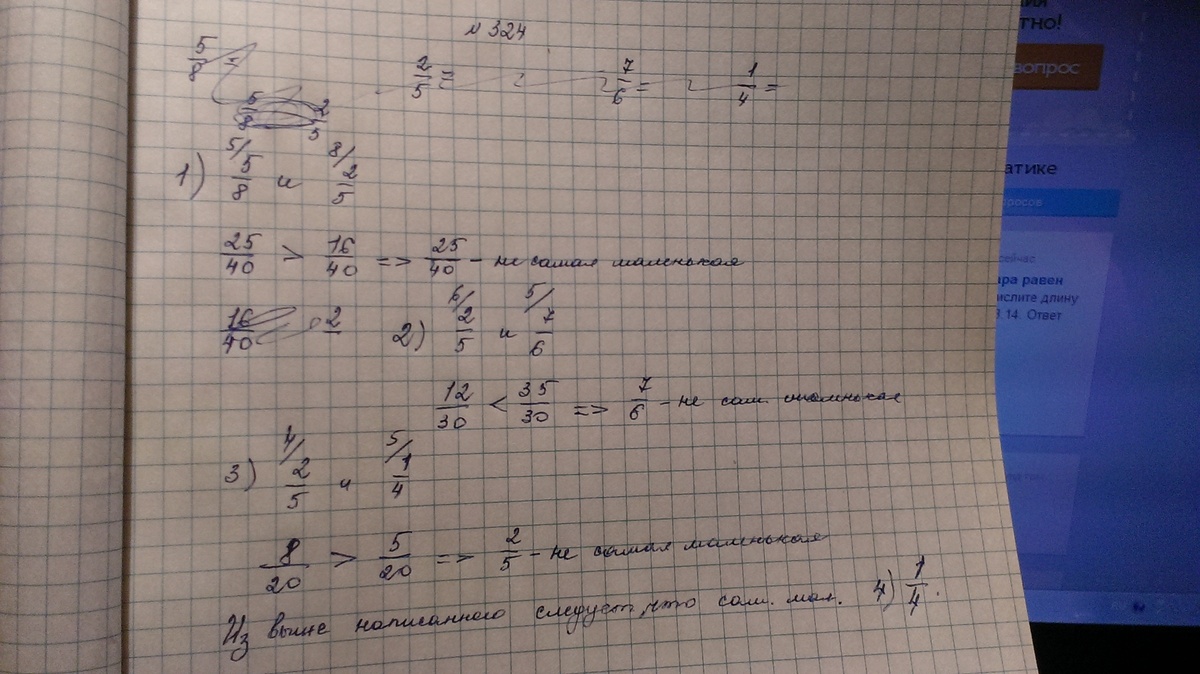 № 324
5/8 2/5 = 7/6 = 1/4 =
5/8 2/5
1) 5/ 5/8 и 8/ 2/5
25/40 > 16/40 => 25/40 - не самая маленькая
16/40 2
2) 6/ 2/5 и 5/ 7/6
12/30 < 35/30 => 7/6 - не сам. маленькая
3) 4/ 2/5 и 5/ 1/4
8/20 > 5/20 => 2/5 - не самая маленькая
Из выше написанного следует, что сам. мал. 4) 1/4.
тно!
вопрос
атике
просов
сейчас
ара равен
ислите длину
3.14. Ответ